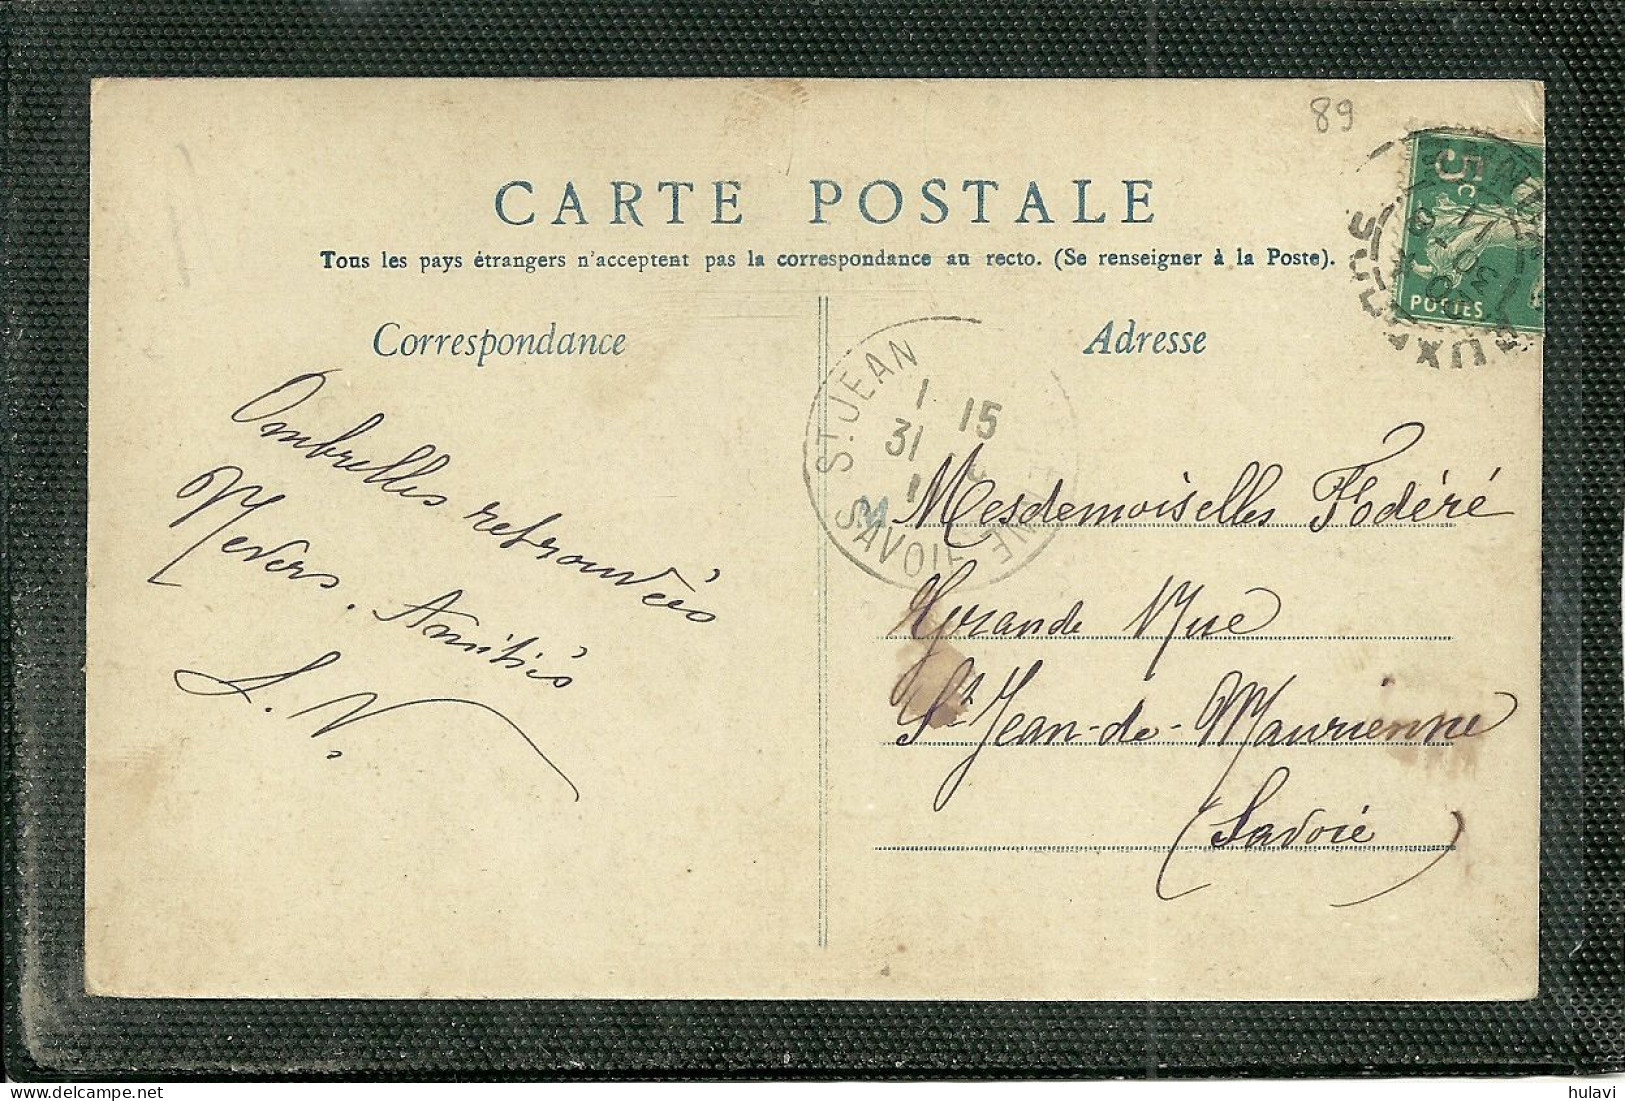 89
CARTE POSTALE
Tous les pays étrangers n'acceptent pas la correspondance au recto. (Se renseigner à la Poste).
Correspondance
Adresse
5c
POSTES
ST. JEAN
1 15
31
1
SAVOIE
Ombrelles retrouvées
Nevers. Amitiés
S. V.
Mesdemoiselles Fodéré
Grande Rue
St Jean-de-Maurienne
(Savoie)
hulavi